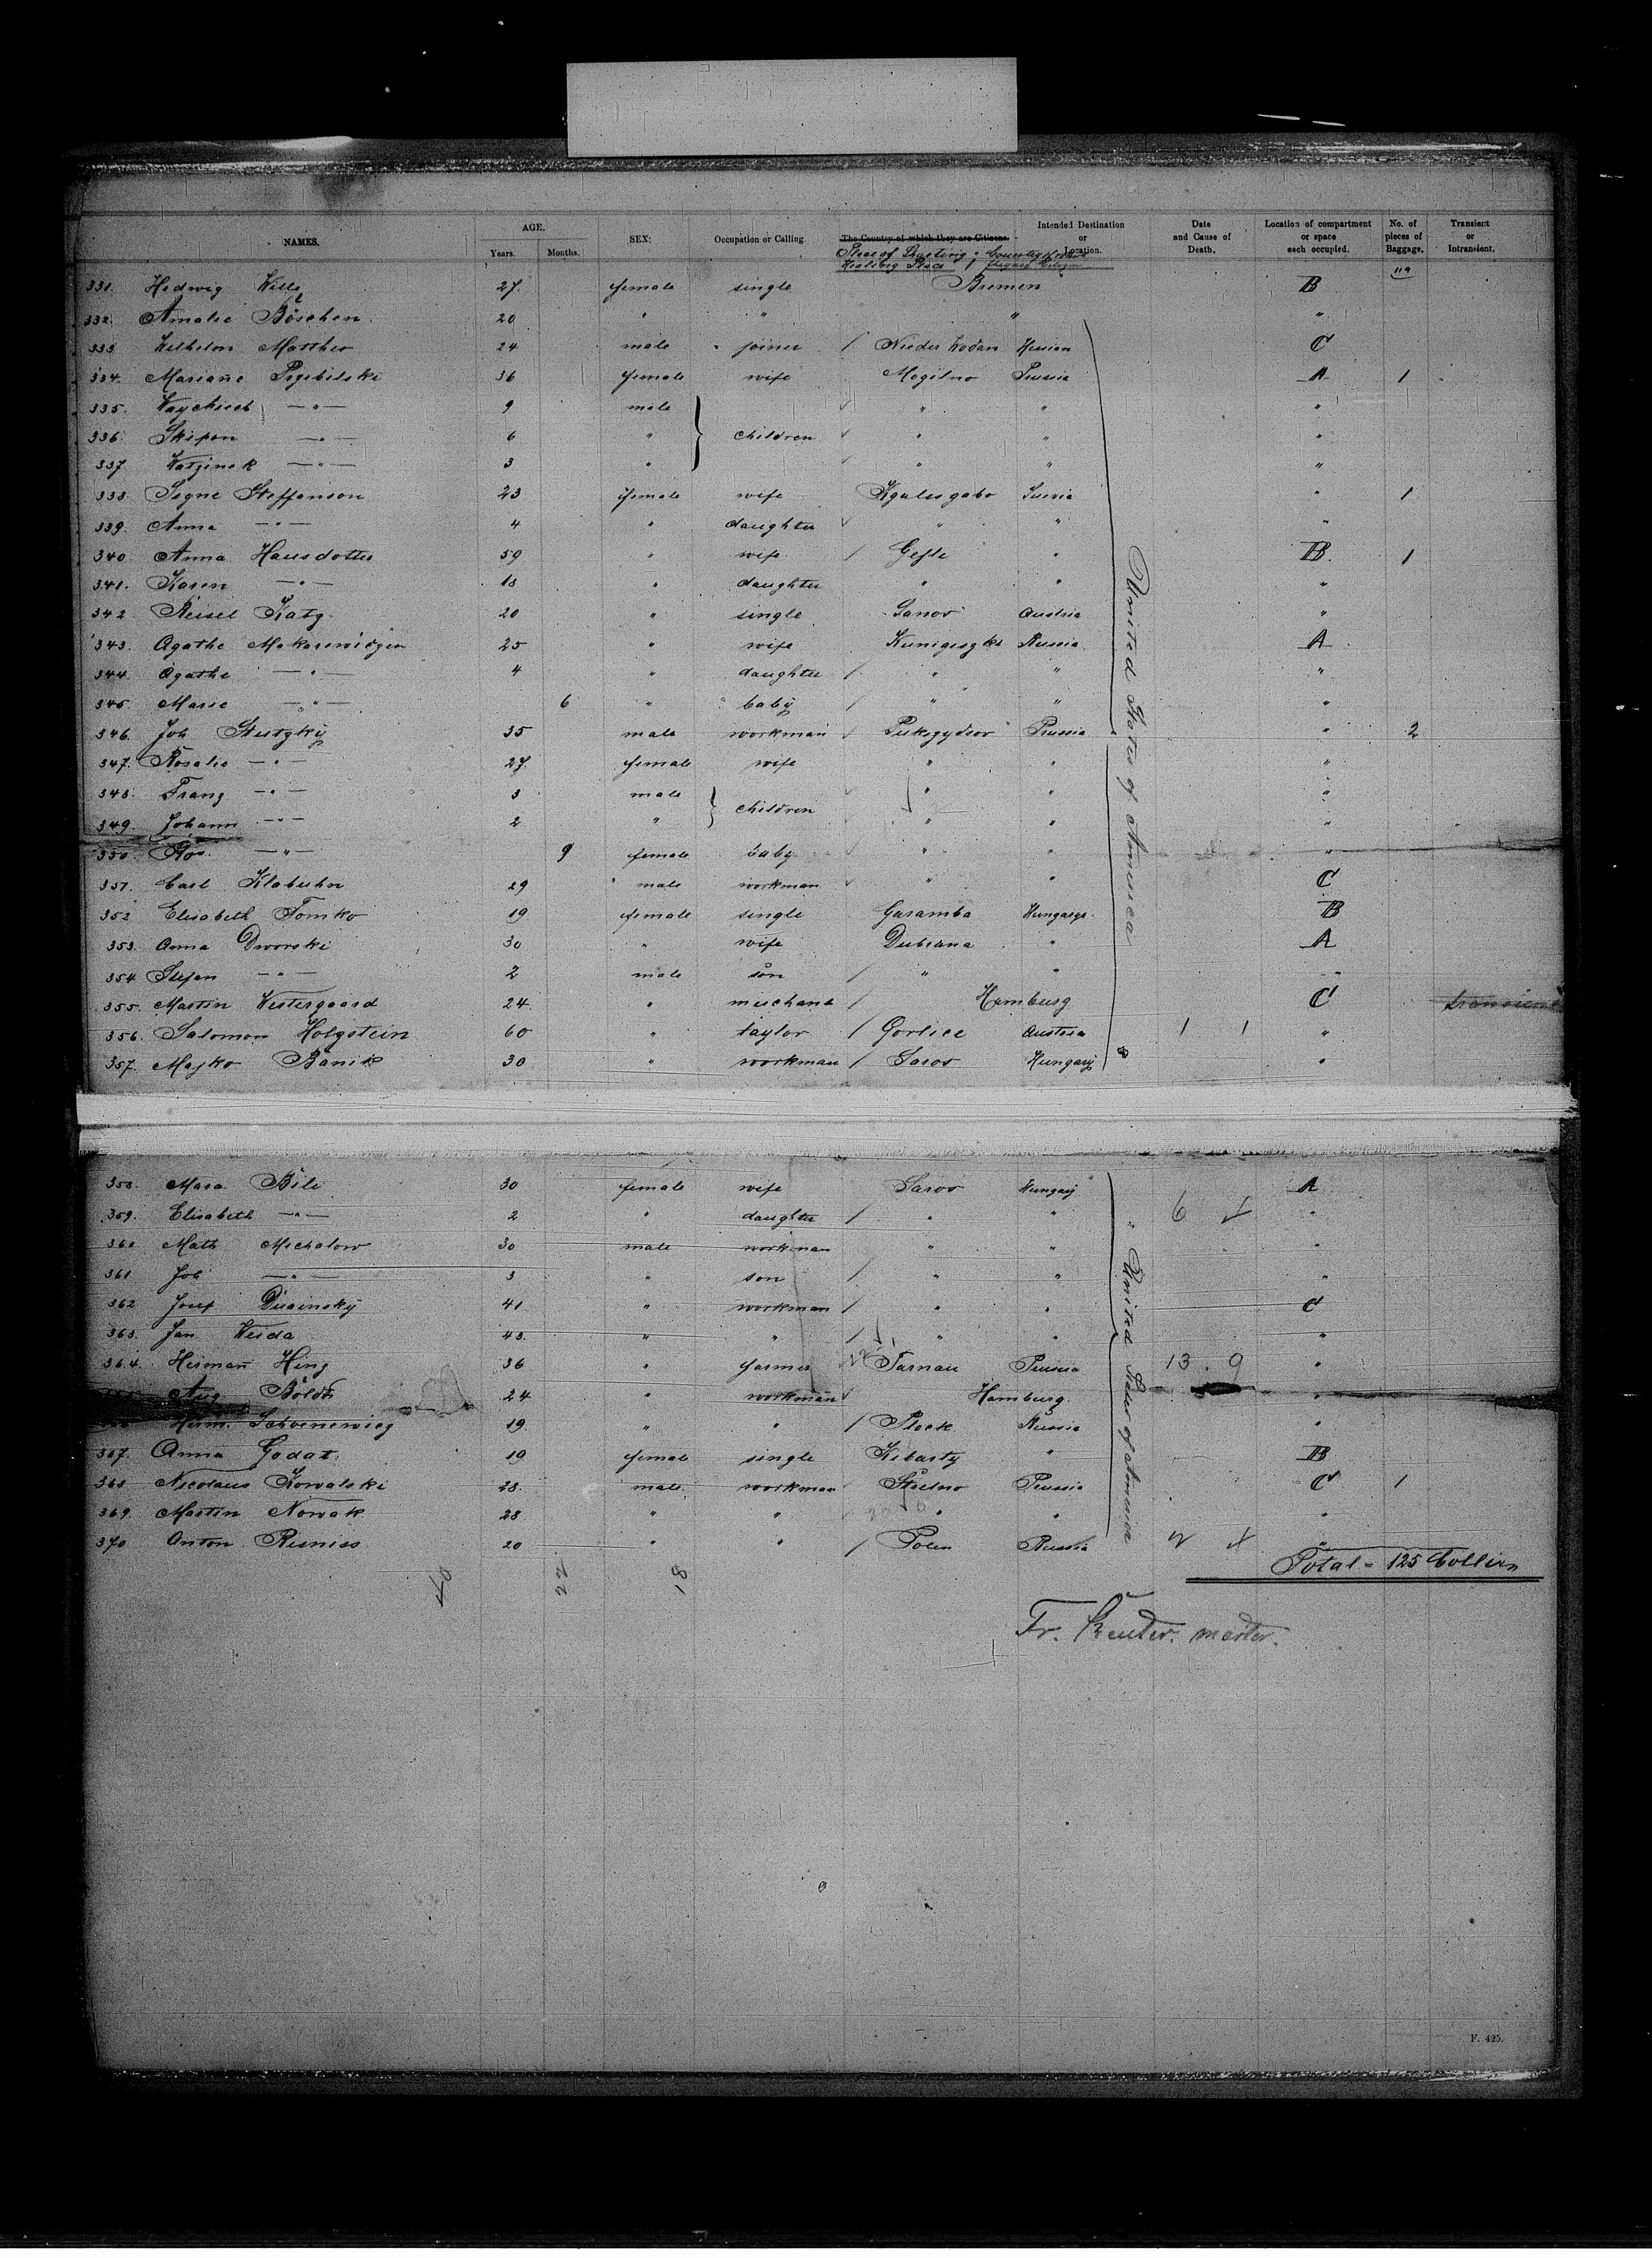 NAMES. AGE. Years. Months. SEX: Occupation or Calling. The Country of which they are Citizens. Intended Destination or Location. Date and Cause of Death. Location of compartment or space each occupied. No. of pieces of Baggage. Transient or Intransient.
119
331. Hedwig Wille 27. female single Bremen B
332. Amalie Böschen 20 " " " "
333 Wilhelm Matthes 24 male joiner / Nieder Hessian C
334. Mariane Pzybilski 36 female wife Mogilno Prussia A 1
335. — " — 9 male " " "
336. — " — 6 " children " " "
337. — " — 3 " " " "
338 Signe Steffanson 23 female wife Suevia " 1
339. Anna — " — 4 " daughter " " "
340 Anna Hansdotter 59 " wife / Gefle " B. 1
341. Karen — " — 18 " daughter " " "
342 Reisel Katz 20 " single Sanov Austria "
343. Agathe Makarewidzen 25 " wife Russia A
344. Agathe — " — 4 " daughter / " " "
345. Marie — " — 6 " baby / " " "
346. Joh Stutzky 35 male workman Prussia " 2
347. Rosalie — " — 27. female wife " " "
348. Franz — " — 3 male " " "
349. Johann — " — 2 " children " " "
350. Ros. — " — 9 female baby " " "
351. Carl Klabuhn 29 male workman " " C
352 Elisabeth Tomko 19 female single Garamba Hungary. B
353. Anna Dworski 30 " wife Dubrana " A
354 Stefan — " — 2 male son / " " "
355. Martin Westergaard 24 " merchant / Hamburg C transient
356. Salomon Holzstein 60 " taylor / Gorlice Austria 1 1 "
357. Majko Banik 30 " workman / Saros Hungary "
United States of America
358. Mara Bile 30 female wife Saros Hungary A
359. Elisabeth — " — 2 " daughter / " " 6 "
360 Math Michalow 30 male workman " " "
361 Joh — " — 3 " son / " " "
362 Josef Dusinsky 41 " workman / " " C
363. Jan Weida 43. " " / " " "
364. Hermañ Hinz 36 " farmer Tarnau Prussia 13. 9 "
Aug Boldt 24 " workmañ Hamburg "
Herm. Schoenewieg 19. " " / Plock Russia "
367. Anna Godat 19 female single Kibarty " B
368 Nicolaus Kowalski 28. male workman Strelno Prussia C 1
369. Martin Nowak 28 " " " " "
370 Anton Resniss 20 " " / Polen Russia "
United States of America
Total = 125 Collien
22 18
Fr. Reuter. master.
F. 425.